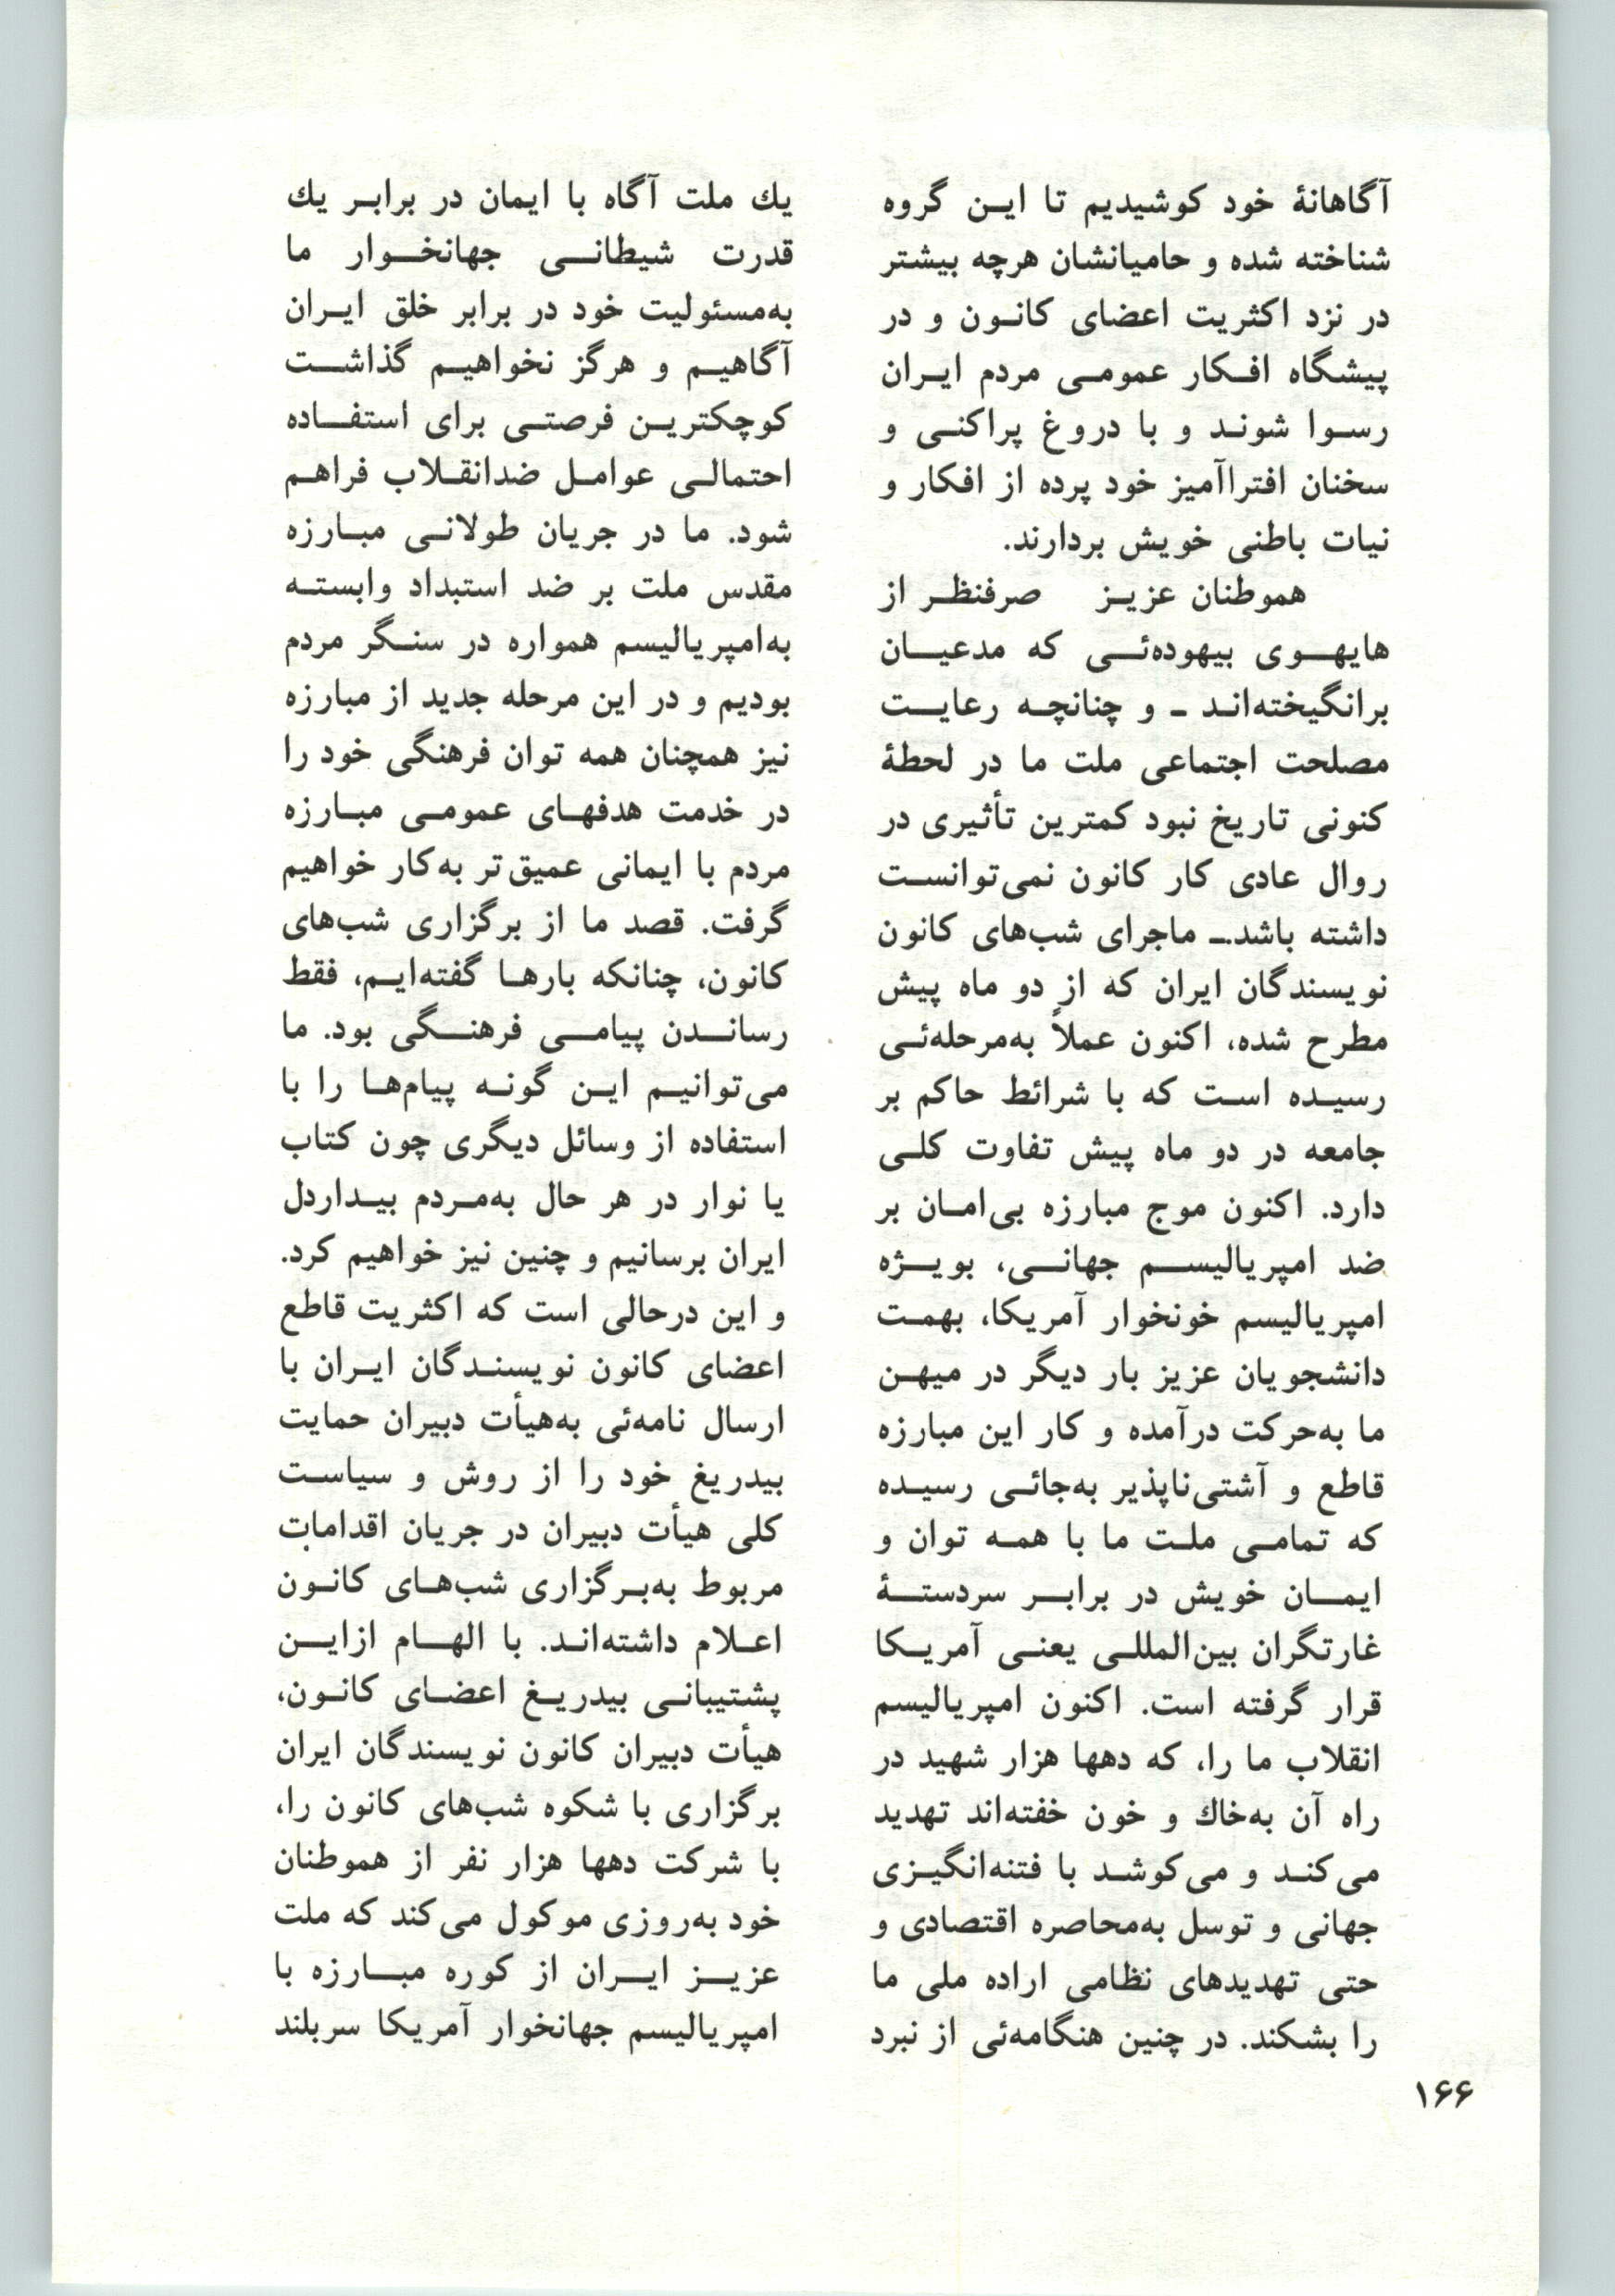 آگاهانهٔ خود کوشیدیم تا این گروه
شناخته شده و حامیانشان هرچه بیشتر
در نزد اکثریت اعضای کانون و در
پیشگاه افکار عمومی مردم ایران
رسوا شوند و با دروغ پراکنی و
سخنان افتراآمیز خود پرده از افکار و
نیات باطنی خویش بردارند.
هموطنان عزیز صرفنظر از
هایهوی بیهوده‌ئی که مدعیان
برانگیخته‌اند ـ و چنانچه رعایت
مصلحت اجتماعی ملت ما در لحطهٔ
کنونی تاریخ نبود کمترین تأثیری در
روال عادی کار کانون نمی‌توانست
داشته باشد.ـ ماجرای شب‌های کانون
نویسندگان ایران که از دو ماه پیش
مطرح شده، اکنون عملاً به‌مرحله‌ئی
رسیده است که با شرائط حاکم بر
جامعه در دو ماه پیش تفاوت کلی
دارد. اکنون موج مبارزه بی‌امان بر
ضد امپریالیسم جهانی، بویژه
امپریالیسم خونخوار آمریکا، بهمت
دانشجویان عزیز بار دیگر در میهن
ما به‌حرکت درآمده و کار این مبارزه
قاطع و آشتی‌ناپذیر به‌جائی رسیده
که تمامی ملت ما با همه توان و
ایمان خویش در برابر سردستهٔ
غارتگران بین‌المللی یعنی آمریکا
قرار گرفته است. اکنون امپریالیسم
انقلاب ما را، که دهها هزار شهید در
راه آن به‌خاك و خون خفته‌اند تهدید
می‌کند و می‌کوشد با فتنه‌انگیزی
جهانی و توسل به‌محاصره اقتصادی و
حتی تهدیدهای نظامی اراده ملی ما
را بشکند. در چنین هنگامه‌ئی از نبرد
یك ملت آگاه با ایمان در برابر یك
قدرت شیطانی جهانخوار ما
به‌مسئولیت خود در برابر خلق ایران
آگاهیم و هرگز نخواهیم گذاشت
کوچکترین فرصتی برای استفاده
احتمالی عوامل ضدانقلاب فراهم
شود. ما در جریان طولانی مبارزه
مقدس ملت بر ضد استبداد وابسته
به‌امپریالیسم همواره در سنگر مردم
بودیم و در این مرحله جدید از مبارزه
نیز همچنان همه توان فرهنگی خود را
در خدمت هدفهای عمومی مبارزه
مردم با ایمانی عمیق‌تر به‌کار خواهیم
گرفت. قصد ما از برگزاری شب‌های
کانون، چنانکه بارها گفته‌ایم، فقط
رساندن پیامی فرهنگی بود. ما
می‌توانیم این گونه پیام‌ها را با
استفاده از وسائل دیگری چون کتاب
یا نوار در هر حال به‌مردم بیداردل
ایران برسانیم و چنین نیز خواهیم کرد.
و این درحالی است که اکثریت قاطع
اعضای کانون نویسندگان ایران با
ارسال نامه‌ئی به‌هیأت دبیران حمایت
بیدریغ خود را از روش و سیاست
کلی هیأت دبیران در جریان اقدامات
مربوط به‌برگزاری شب‌های کانون
اعلام داشته‌اند. با الهام ازاین
پشتیبانی بیدریغ اعضای کانون،
هیأت دبیران کانون نویسندگان ایران
برگزاری با شکوه شب‌های کانون را،
با شرکت دهها هزار نفر از هموطنان
خود به‌روزی موکول می‌کند که ملت
عزیز ایران از کوره مبارزه با
امپریالیسم جهانخوار آمریکا سربلند
۱۶۶